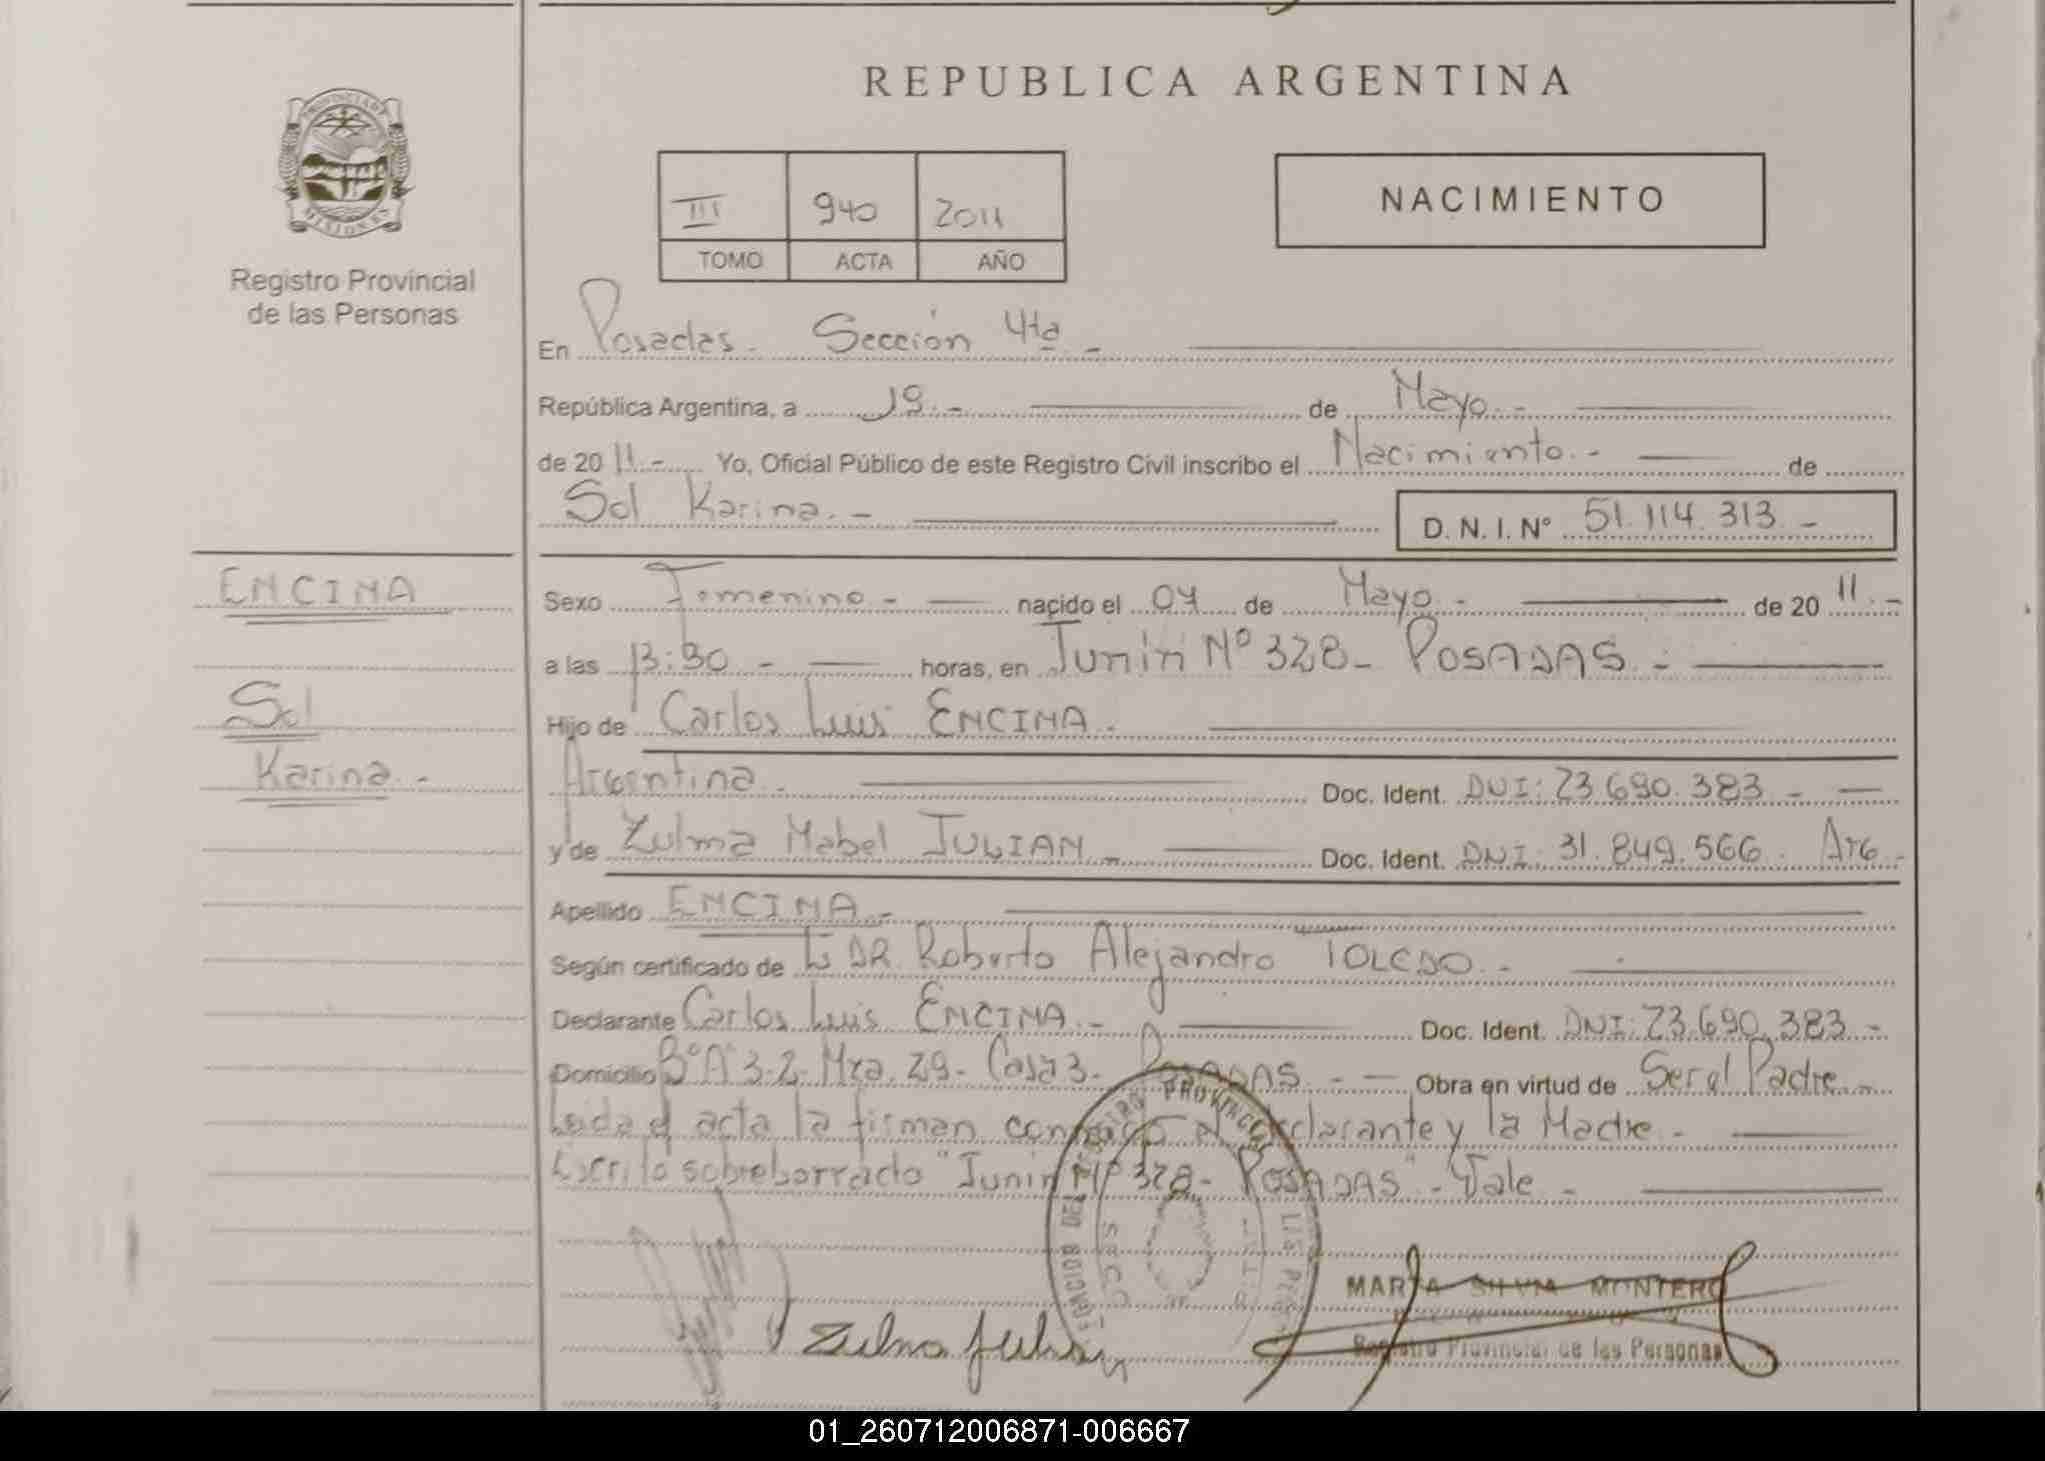 REPUBLICA ARGENTINA
PROVINCIA DE
MISIONES
Registro Provincial
de las Personas
III 940 2011
TOMO ACTA AÑO
NACIMIENTO
En Posadas. Sección 4ta -
República Argentina, a 19.- de Mayo.-
de 20 11.- Yo, Oficial Público de este Registro Civil inscribo el Nacimiento.- de
Sol Karina.-
D. N. I. Nº 51.114.313.-
ENCINA
Sol
Karina.-
Sexo Femenino.- nacido el 04 de Mayo.- de 20 11.-
a las 13:30 - horas, en Junín Nº 328- POSADAS.-
Hijo de Carlos Luis ENCINA.-
Argentina.- Doc. Ident. DNI: 23.690.383 -
y de Zulma Mabel JULIAN - Doc. Ident. DNI: 31.849.566. Arg.-
Apellido ENCINA.-
Según certificado de DR. Roberto Alejandro TOLEDO.-
Declarante Carlos Luis ENCINA.- Doc. Ident. DNI: 23.690.383.-
Domicilio Bº A 3-2- Mza. 29- Casa 3- POSADAS.- Obra en virtud de Ser el Padre.-
Leída el acta la firman conmigo el declarante y la Madre.-
Escrito sobreborrado "Junín Nº 328- POSADAS"- Vale -
Zulma Julian
MARTA SILVIA MONTERO
Registro Provincial de las Personas
01_260712006871-006667